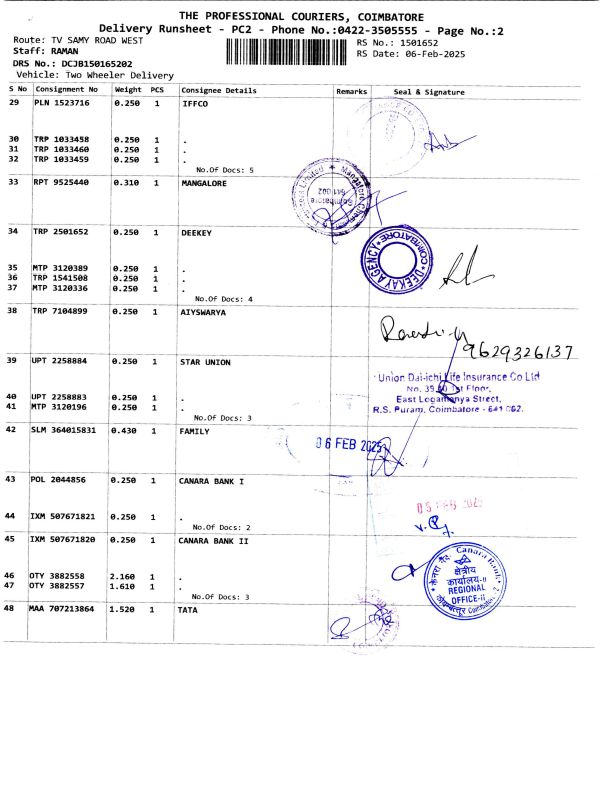 THE PROFESSIONAL COURIERS, COIMBATORE
Delivery Runsheet - PC2 - Phone No.:0422-3505555 - Page No.:2
Route: TV SAMY ROAD WEST
RS No.: 1501652
Staff: RAMAN
RS Date: 06-Feb-2025
DRS No.: DCJB150165202
Vehicle: Two Wheeler Delivery
S No Consignment No Weight PCS Consignee Details Remarks Seal & Signature
29 PLN 1523716 0.250 1 IFFCO
30 TRP 1033458 0.250 1 .
31 TRP 1033460 0.250 1 .
32 TRP 1033459 0.250 1 .
No.Of Docs: 5
33 RPT 9525440 0.310 1 MANGALORE
34 TRP 2501652 0.250 1 DEEKEY
DEEKAY AGENCY
COIMBATORE
35 MTP 3120389 0.250 1 .
36 TRP 1541508 0.250 1 .
37 MTP 3120336 0.250 1 .
No.Of Docs: 4
38 TRP 7104899 0.250 1 AIYSWARYA
9629326137
39 UPT 2258884 0.250 1 STAR UNION
Union Dai-ichi Life Insurance Co Ltd
1st Floor,
East Logamanya Street,
R.S. Puram, Coimbatore - 641 002.
40 UPT 2258883 0.250 1 .
41 MTP 3120196 0.250 1 .
No.Of Docs: 3
42 SLM 364015831 0.430 1 FAMILY
06 FEB 2025
43 POL 2044856 0.250 1 CANARA BANK I
05 FEB 2025
44 IXM 507671821 0.250 1 .
No.Of Docs: 2
45 IXM 507671820 0.250 1 CANARA BANK II
Canara Bank
क्षेत्रीय
कार्यालय-II
REGIONAL
OFFICE-II
46 OTY 3882558 2.160 1 .
47 OTY 3882557 1.610 1 .
No.Of Docs: 3
48 MAA 707213864 1.520 1 TATA